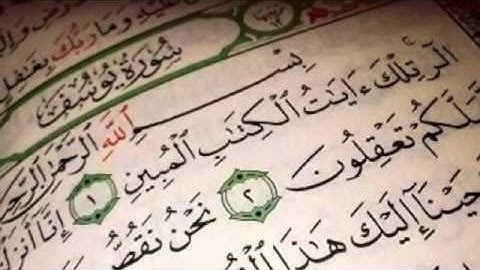 عَلَيْهِ وَمَا رَبُّكَ بِغَٰفِلٍ
سُورَةُ يُوسُفَ
بِسْمِ ٱللَّهِ ٱلرَّحْمَٰنِ ٱلرَّحِيمِ
الٓر تِلْكَ ءَايَٰتُ ٱلْكِتَٰبِ ٱلْمُبِينِ ١ إِنَّآ أَنزَلْ
لَّكُمْ تَعْقِلُونَ ٢ نَحْنُ نَقُصُّ
حَيْنَآ إِلَيْكَ هَٰذَا